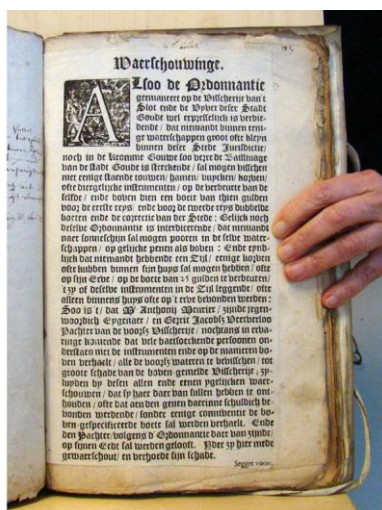 Waerschouwinge.
Alsoo de Ordonnantie
gemaneert op de Visscherije van't
Slot ende de Vyver deser Stadt
Goude wel expresselijck is verbie-
dende / dat niemandt binnen eeni-
ge waterschappen groot ofte kleyn
binnen deser Stede Jurisdictie /
noch in de kromme Gouwe soo verre de Bailliuage
van de stadt Goude is streckende / sal mogen visschen
met eenige staende touwen / hamen / duycken / korven /
ofte diergelijcke instrumenten / op de verbeurte van de
selfde / ende boven dien een boete van thien gulden
voor de eerste reys / ende voor de tweede reys dubbelde
boeten ende de correctie van der Stede: Gelijck noch
deselve Ordonnantie is interdicerende / dat niemandt
naer sonneschijn sal mogen pooren in de selve water-
schappen / op gelijcke penen als boven: Ende eynd-
lijck dat niemandt hebbende een Zijl / eenige korven
ofte kubben binnen sijn huys sal mogen hebben / ofte
op sijn Erve / op de boete van 25 gulden te verbeuren /
't zy of deselve instrumenten in de Zijl leggende / ofte
alleen binnens huys ofte op 't erve bevonden werden:
Soo is 't / dat Mr Anthonij Meurier / zijnde jegen-
woordich Eygenaer / en Gerrit Jacobsz Verherloo
Pachter van de voorsz Visscherije / nochtans in erva-
ringe komende dat vele baetsoeckende persoonen on-
derstaen met de instrumenten ende op de manieren bo-
ven verhaelt / alle de voorsz wateren te bevisschen / tot
groote schade van de boven-gemelde Visscherije; zy-
luyden by desen allen ende eenen ygelijcken waer-
schouwen / dat sy haer daer van sullen hebben te ont-
houden / ofte dat aen den genen darinne schuldich be-
vonden werdende / sonder eenige conniventie de bo-
ven-gespecificeerde boete sal werden verhaelt. Ende
den Pachter volgens d'Ordonnantie daer van zijnde /
op sijnen Eedt sal werden gelooft. Yder zy hier mede
gewaerschout / en verhoede sijn schade.
Segget voort.